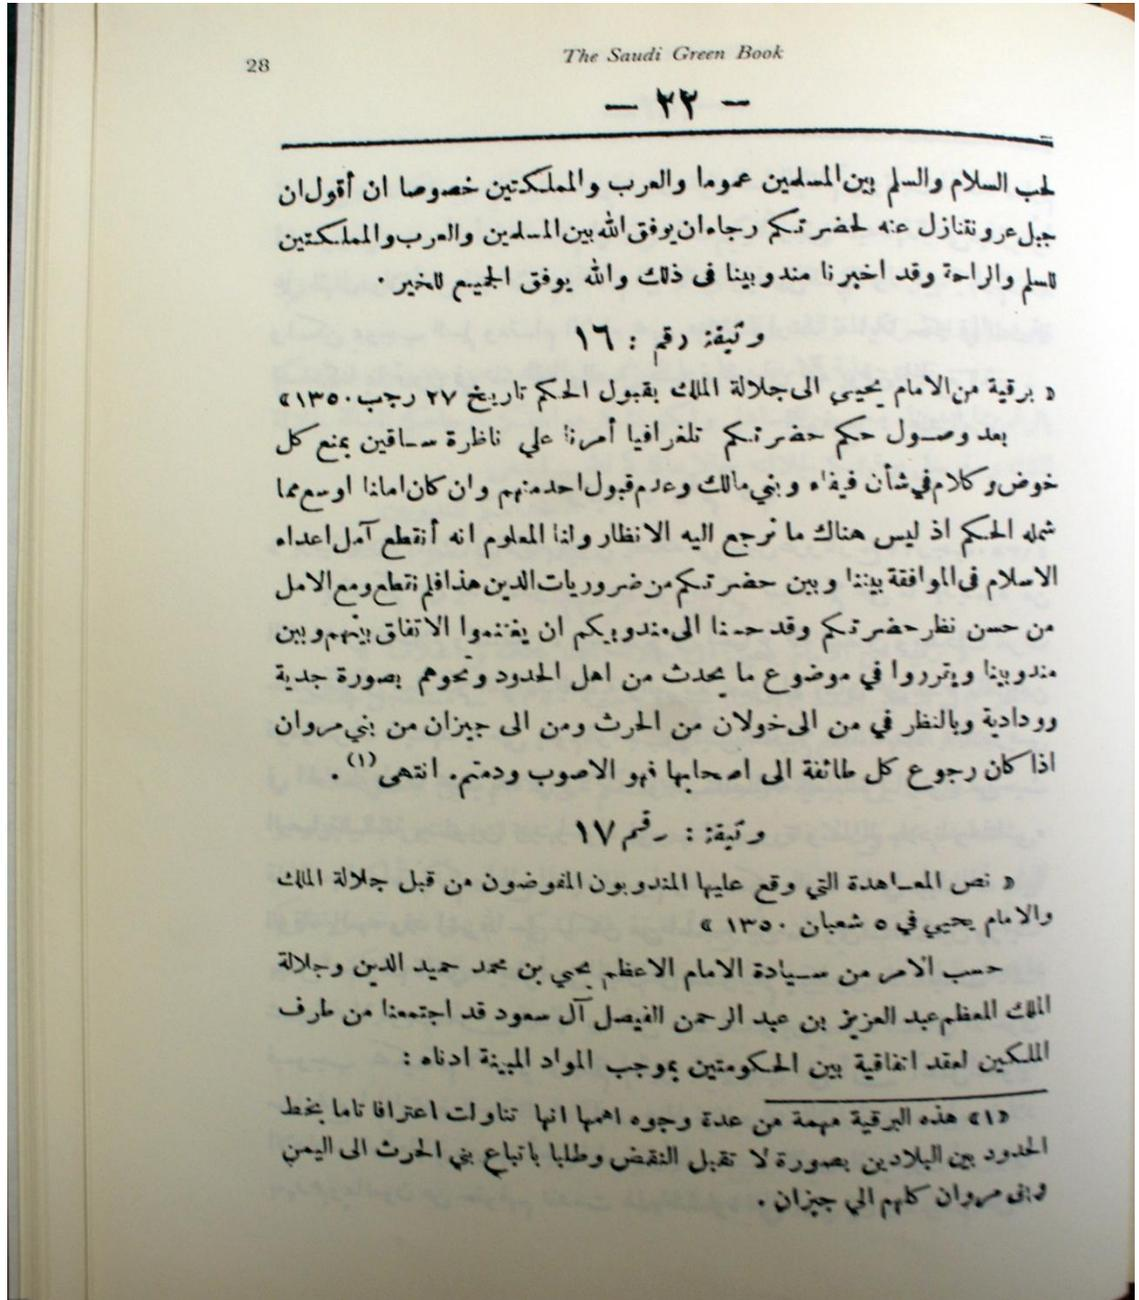 28
The Saudi Green Book
— ٢٢ —
لحب السلام والسلم بين المسلمين عموما والعرب والمملكتين خصوصا ان أقول ان
جبل عرو نتنازل عنه لحضرتكم رجاء ان يوفق الله بين المسلمين والعرب والمملكتين
للسلم والراحة وقد اخبرنا مندوبينا في ذلك والله يوفق الجميع للخير .
وثيقة رقم : ١٦
« برقية من الامام يحيى الى جلالة الملك بقبول الحكم تاريخ ٢٧ رجب ١٣٥٠ »
بعد وصول حكم حضرتكم تلغرافيا أمرنا علي ناظرة ساقين بمنع كل
خوض وكلام في شأن فيفاء وبني مالك وعدم قبول احد منهم وان كان اماننا اوسع مما
شمله الحكم اذ ليس هناك ما نرجع اليه الانظار ولنا المعلوم انه أنقطع آمل اعداء
الاسلام في الموافقة بيننا وبين حضرتكم من ضروريات الدين هذا فلم نقطع ومع الامل
من حسن نظر حضرتكم وقد حسنا الى مندوبيكم ان يغتنموا الاتفاق بينهم وبين
مندوبينا ويقرروا في موضوع ما يحدث من اهل الحدود ونحوهم بصورة جدية
وودادية وبالنظر في من الى خولان من الحرث ومن الى جيزان من بني مروان
اذا كان رجوع كل طائفة الى اصحابها فهو الاصوب ودمتم. انتهى (١) .
وثيقة : رقم ١٧
« نص المعاهدة التي وقع عليها المندوبون المفوضون من قبل جلالة الملك
والامام يحيي في ٥ شعبان ١٣٥٠ »
حسب الامر من سيادة الامام الاعظم يحيى بن محمد حميد الدين وجلالة
الملك المعظم عبد العزيز بن عبد الرحمن الفيصل آل سعود قد اجتمعنا من طرف
الملكين لعقد اتفاقية بين الحكومتين بموجب المواد المبينة ادناه :
«١» هذه البرقية مهمة من عدة وجوه اهمها انها تناولت اعترافا تاما بخط
الحدود بين البلادين بصورة لا تقبل النقض وطلبا باتباع بني الحرث الى اليمن
وبنى مروان كلهم الي جيزان .